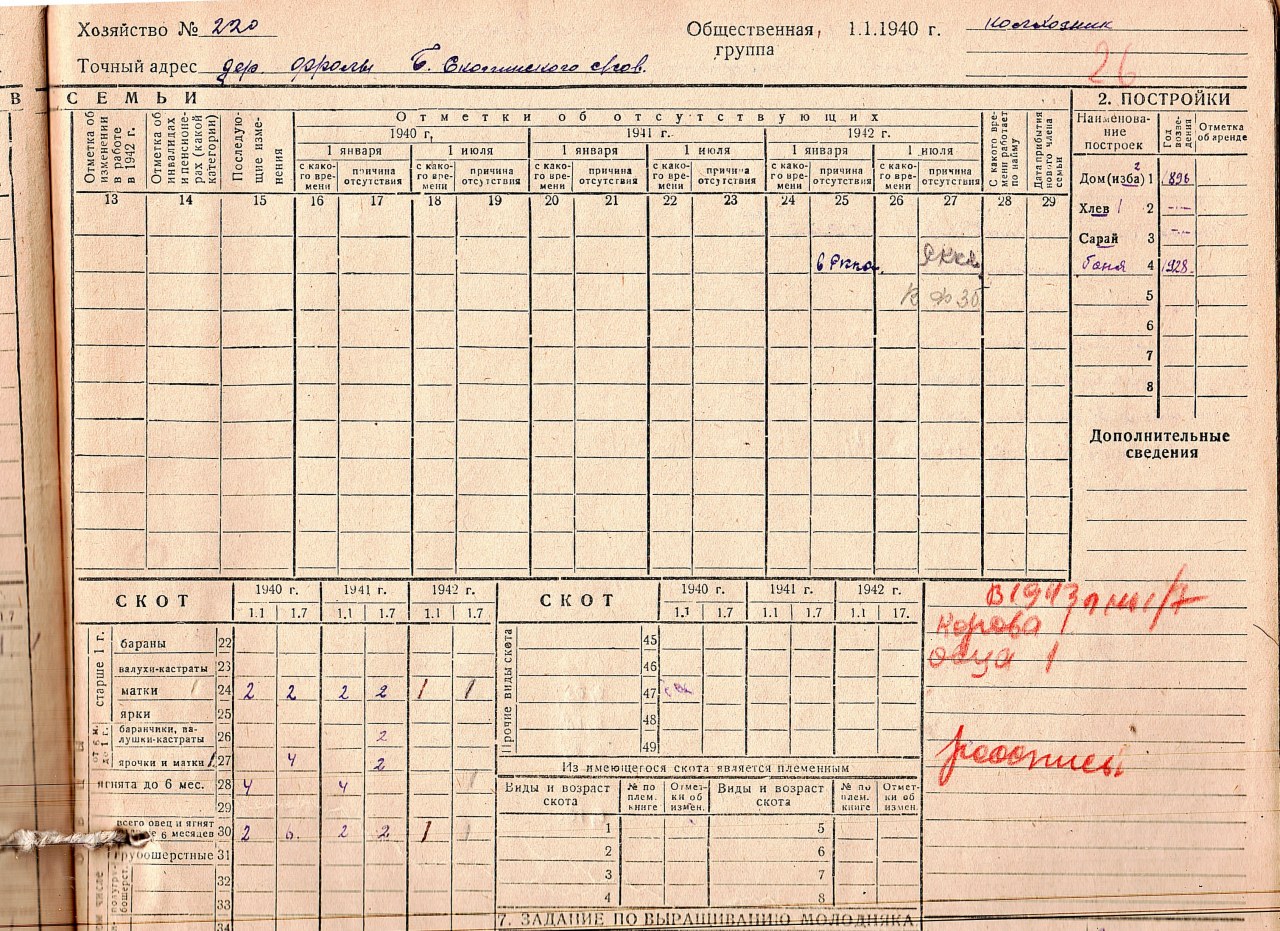 Хозяйство № 220
Общественная группа 1.1.1940 г. колхозник
26
Точный адрес дер. Фролы Б. Скопинского с/сов.
В
СЕМЬИ
Отметка об изменении в работе в 1942 г.
Отметка об инвалидах и пенсионерах (какой категории)
Последующие изменения
Отметки об отсутствующих
1940 г. 1941 г. 1942 г.
1 января 1 июля 1 января 1 июля 1 января 1 июля
с како-го вре-мени причина отсутствия с како-го вре-мени причина отсутствия с како-го вре-мени причина отсутствия с како-го вре-мени причина отсутствия с како-го вре-мени причина отсутствия с како-го вре-мени причина отсутствия
С какого времени работает по найму
Дата прибытия нового члена семьи
13 14 15 16 17 18 19 20 21 22 23 24 25 26 27 28 29
в Ркка. Ркка
2. ПОСТРОЙКИ
Наименова-ние построек Год возве-дения Отметка об аренде
2
Дом(изба) 1 896
Хлев 1 2 -"-
Сарай 3 -"-
баня 4 1928.
5
6
7
8
Дополнительные сведения
СКОТ 1940 г. 1941 г. 1942 г.
1.1 1.7 1.1 1.7 1.1 1.7
старше 1 г.
бараны 22
валухи-кастраты 23
матки 1 24 2 2 2 2 1 1
ярки 25
от 6 м. до 1 г.
баранчики, ва-лушки-кастраты 26 2
ярочки и матки 27 4 2
ягнята до 6 мес. 28 4 4 1
29
всего овец и ягнят 6 месяцев 30 2 6. 2 2 1 1
грубошерстные 31
32
33
34
СКОТ 1940 г. 1941 г. 1942 г.
1.1 1.7 1.1 1.7 1.1 17.
Прочие виды скота
45
46
47
48
49
Из имеющегося скота является племенным
Виды и возраст скота № по плем. книге Отмет-ки об измен. Виды и возраст скота № по плем. книге Отмет-ки об измен.
1 5
2 6
3 7
4 8
7. ЗАДАНИЕ ПО ВЫРАЩИВАНИЮ МОЛОДНЯКА
В 1943 г на 1/7
Корова
овца 1